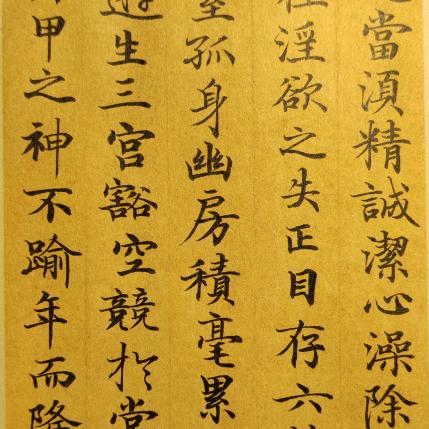 當湏精誠潔心澡除
淫欲之失正目存六
室孤身幽房積毫累
遊生三宫豁空競扵常
甲之神不踰年而降